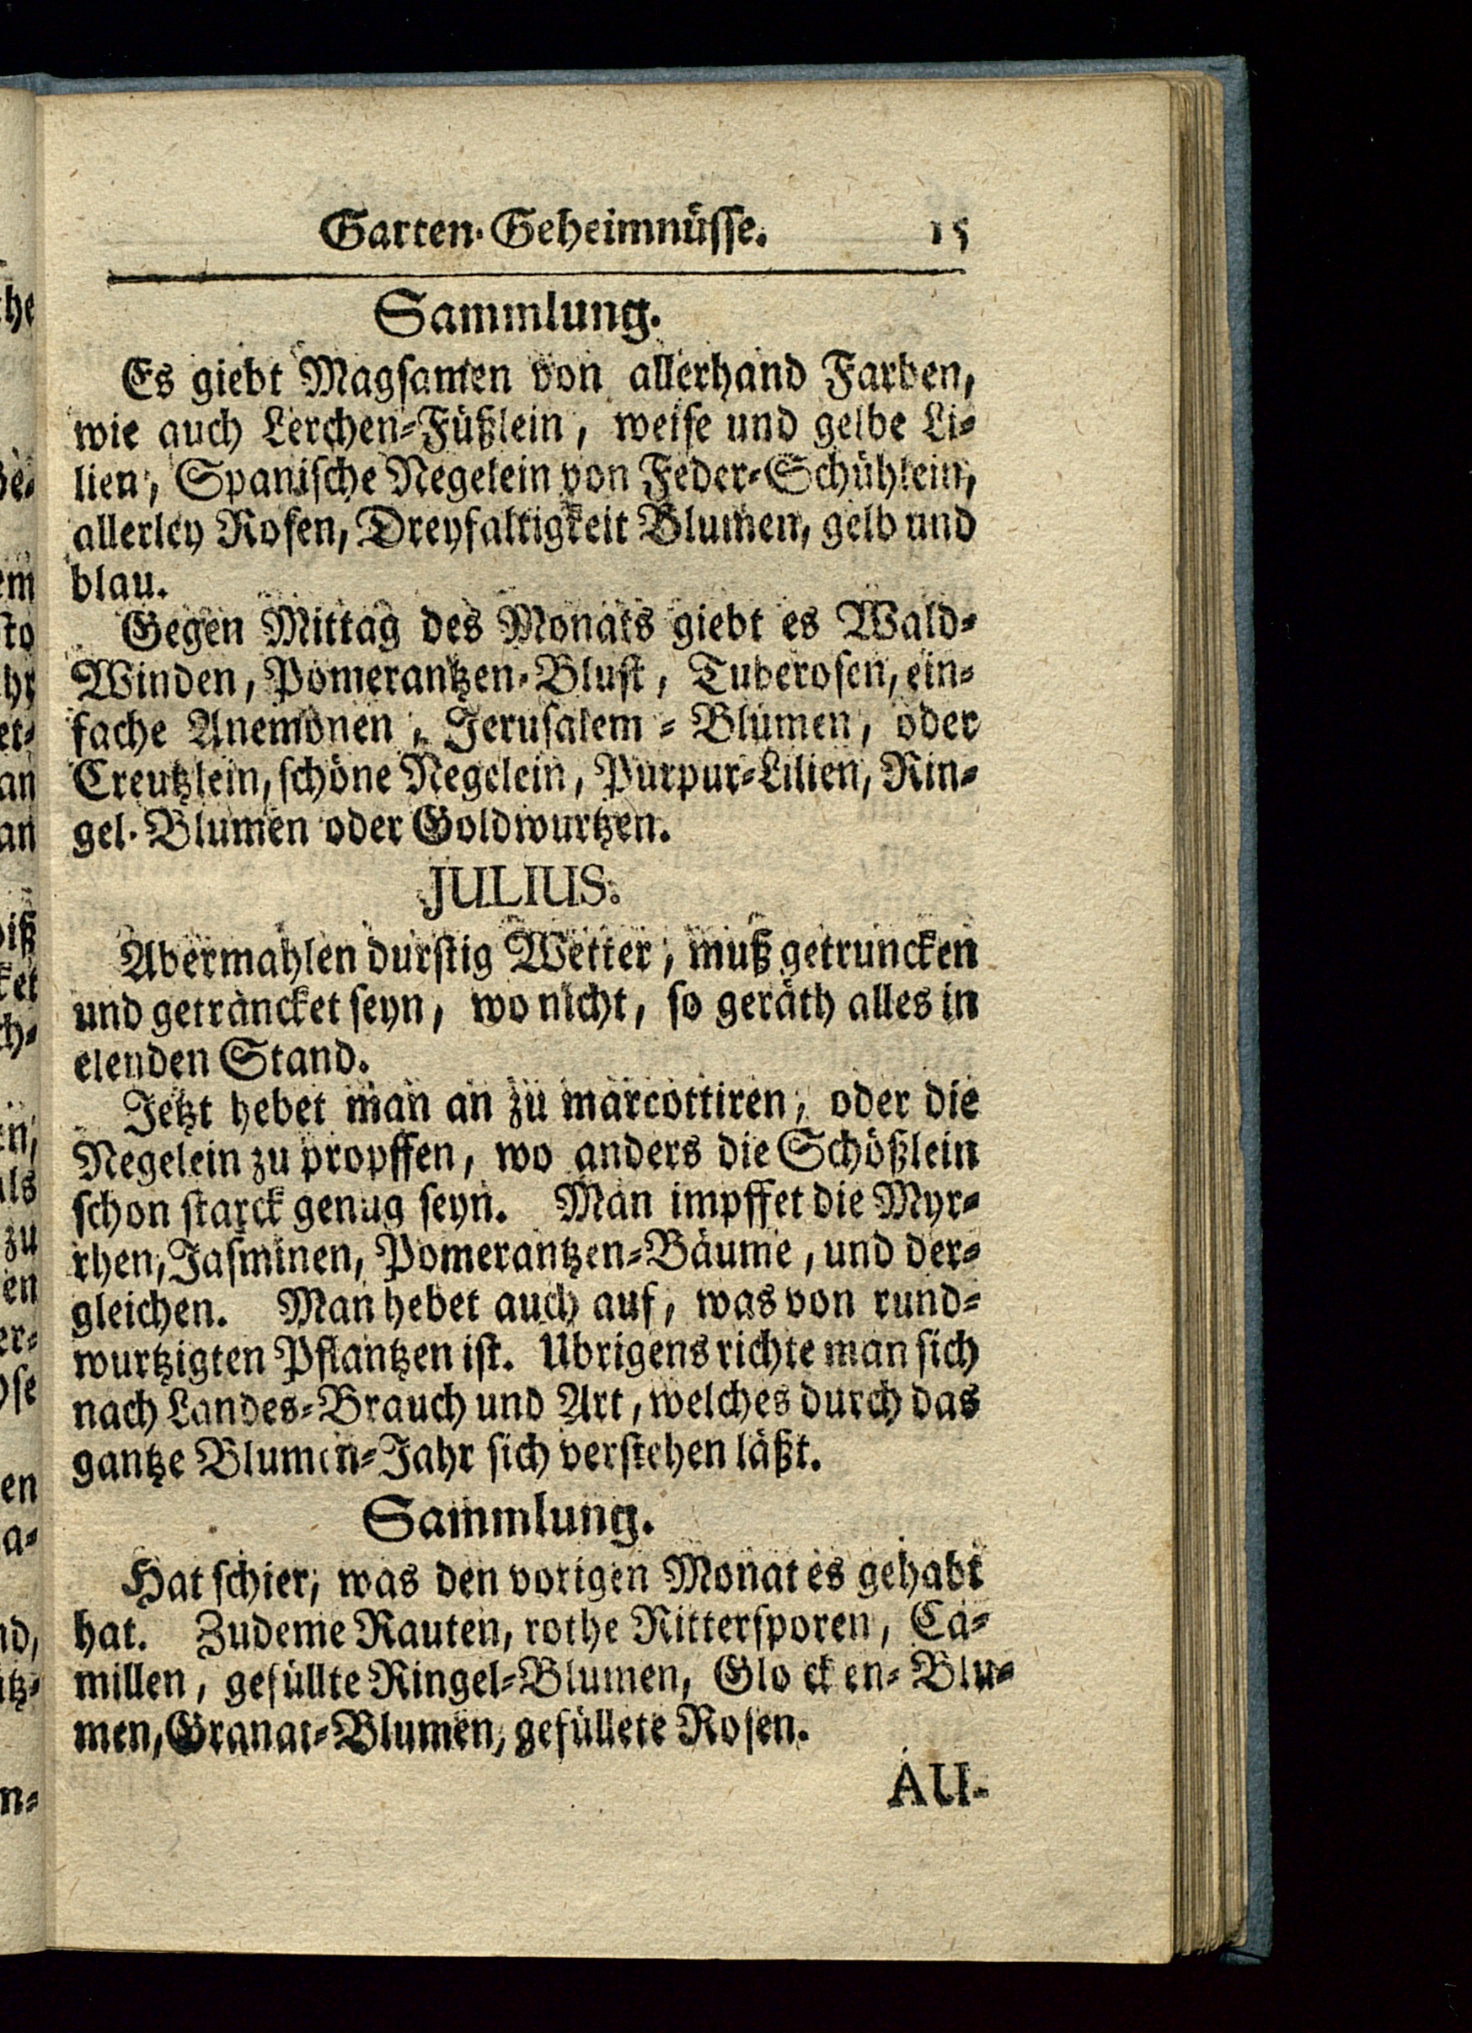 Garten-Geheimnüsse. 15
Sammlung.
Es giebt Magsamen von allerhand Farben,
wie auch Lerchen-Füßlein, weise und gelbe Li-
lien, Spanische Negelein von Feder-Schühlein,
allerley Rosen, Dreyfaltigkeit Blumen, gelb und
blau.
Gegen Mittag des Monats giebt es Wald-
Winden, Pomerantzen-Blust, Tuberosen, ein-
fache Anemonen, Jerusalem-Blumen, oder
Creutzlein, schöne Negelein, Purpur-Lilien, Rin-
gel-Blumen oder Goldwurtzen.
JULIUS.
Abermahlen durstig Wetter, muß getruncken
und geträncket seyn, wo nicht, so geräth alles in
elenden Stand.
Jetzt hebet man an zu marcottiren, oder die
Negelein zu propffen, wo anders die Schößlein
schon starck genug seyn. Man impffet die Myr-
rhen, Jasminen, Pomerantzen-Bäume, und der-
gleichen. Man hebet auch auf, was von rund-
wurtzigten Pflantzen ist. Übrigens richte man sich
nach Landes-Brauch und Art, welches durch das
gantze Blumen-Jahr sich verstehen läßt.
Sammlung.
Hat schier, was den vorigen Monat es gehabt
hat. Zudeme Rauten, rothe Rittersporen, Ca-
millen, gefüllte Ringel-Blumen, Glocken-Blu-
men, Granat-Blumen, gefüllete Rosen.
AU-